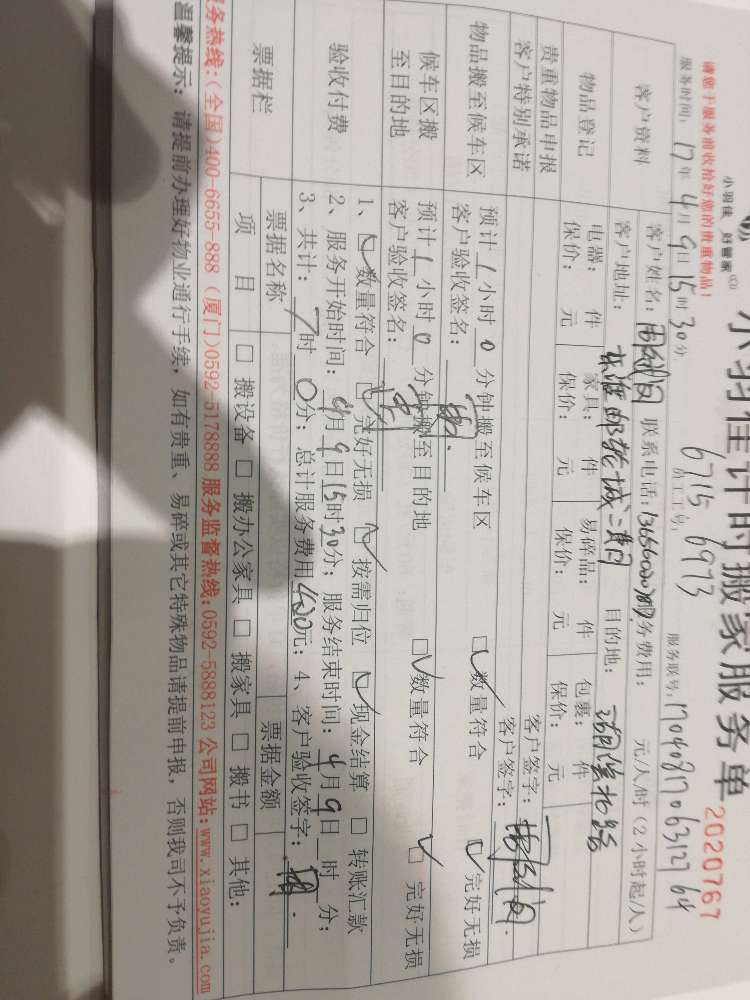 小羽佳 好管家
小羽佳计时搬家服务单
2020767
请您于服务前收拾好您的贵重物品!
6715 6973
员工工号:
服务时间: 17年4月9日15时30分
服务联号:
客户资料
客户姓名: 联系电话: 服务费用: 元/人/时(2小时起/人)
客户地址: 目的地:
物品登记
电器: 件 家具: 件 易碎品: 件 包裹: 件
保价: 元 保价: 元 保价: 元 保价: 元
贵重物品申报
客户签字:
客户特别承诺
客户签字:
物品搬至候车区
预计1小时0分钟搬至候车区 □数量符合 □完好无损
客户验收签名:
候车区搬至目的地
预计1小时0分钟搬至目的地 □数量符合 □完好无损
客户验收签名:
验收付费
1、□数量符合 □完好无损 □按需归位 □现金结算 □转账汇款
2、服务开始时间:4月9日15时30分; 服务结束时间:4月9日 时 分;
3、共计: 时0分; 总计服务费用 元; 4、客户验收签字:
票据栏
票据名称 票据金额
项目 □搬设备 □搬办公家具 □搬家具 □搬书 □其他:
务热线:(全国)400-6655-888 (厦门)0592-5178888 服务监督热线:0592-5888123 公司网站:www.xiaoyujia.com
温馨提示: 请提前办理好物业通行手续, 如有贵重、易碎或其它特殊物品请提前申报, 否则我司不予负责。